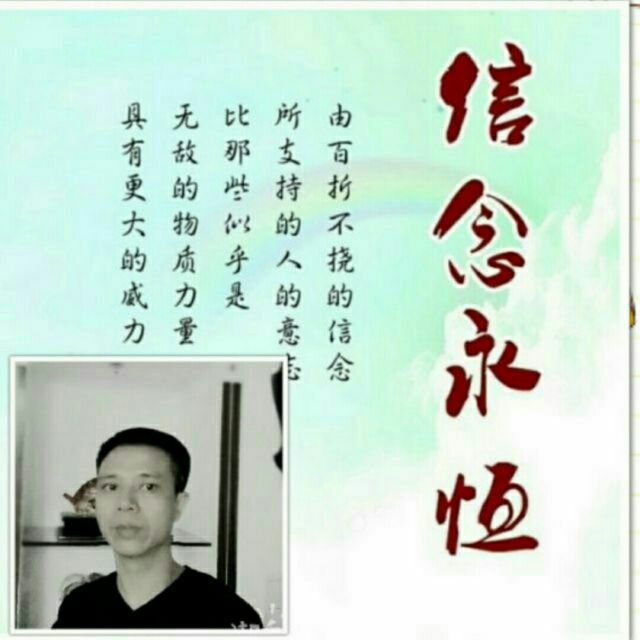 信念永恒
由百折不挠的信念
所支持的人的意志
比那些似乎是
无敌的物质力量
具有更大的威力